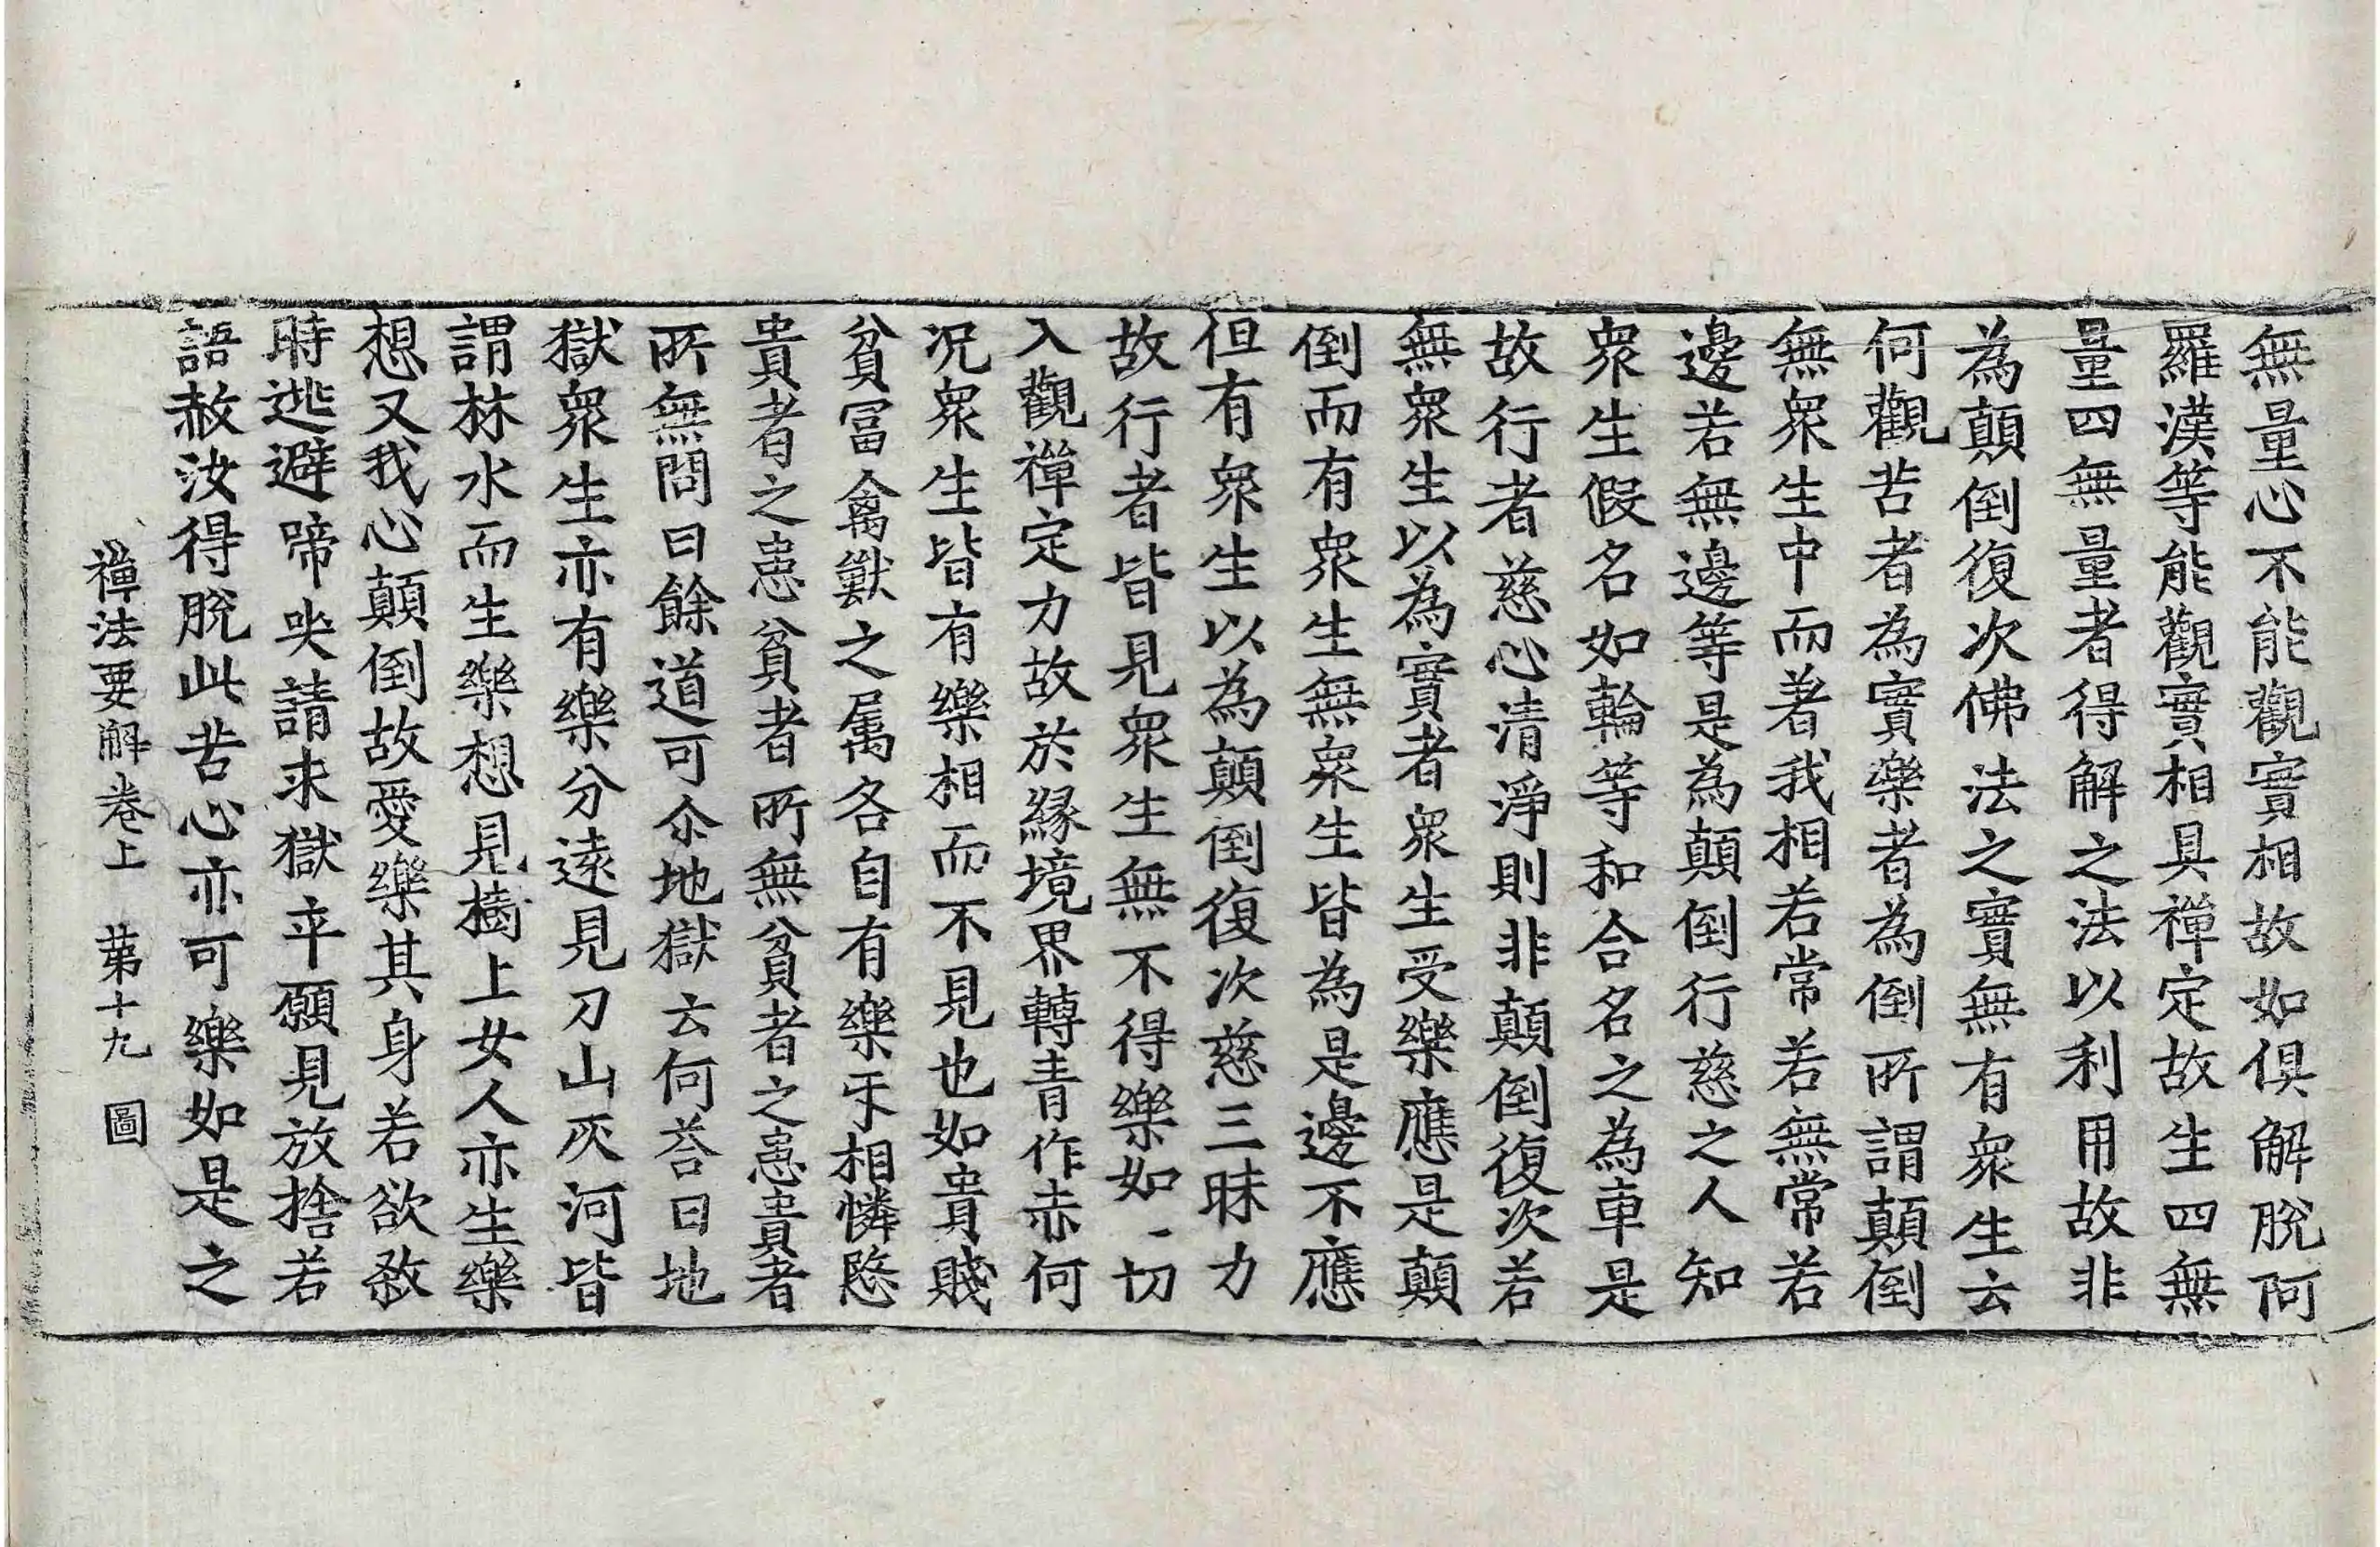 無量心不能觀實相故如俱解脫阿
羅漢等能觀實相具禪定故生四無
量四無量者得解之法以利用故非
為顛倒復次佛法之實無有衆生云
何觀苦者為實樂者為倒所謂顛倒
無衆生中而著我相若常若無常若
邊若無邊等是為顛倒行慈之人知
衆生假名如輪等和合名之為車是
故行者慈心清淨則非顛倒復次若
無衆生以為實者衆生受樂應是顛
倒而有衆生無衆生皆為是邊不應
但有衆生以為顛倒復次慈三昧力
故行者皆見衆生無不得樂如一切
入觀禪定力故於緣境界轉青作赤何
況衆生皆有樂相而不見也如貴賤
貧冨禽獸之属各自有樂㸦相憐愍
貴者之患貧者所無貧者之患貴者
所無問曰餘道可尒地獄云何荅曰地
獄衆生亦有樂分遠見刀山灰河皆
謂林水而生樂想見樹上女人亦生樂
想又我心顛倒故愛樂其身若欲殺
時逃避啼哭請求獄卒願見放捨若
語赦汝得脫此苦心亦可樂如是之
禪法要解卷上 苐十九 圖